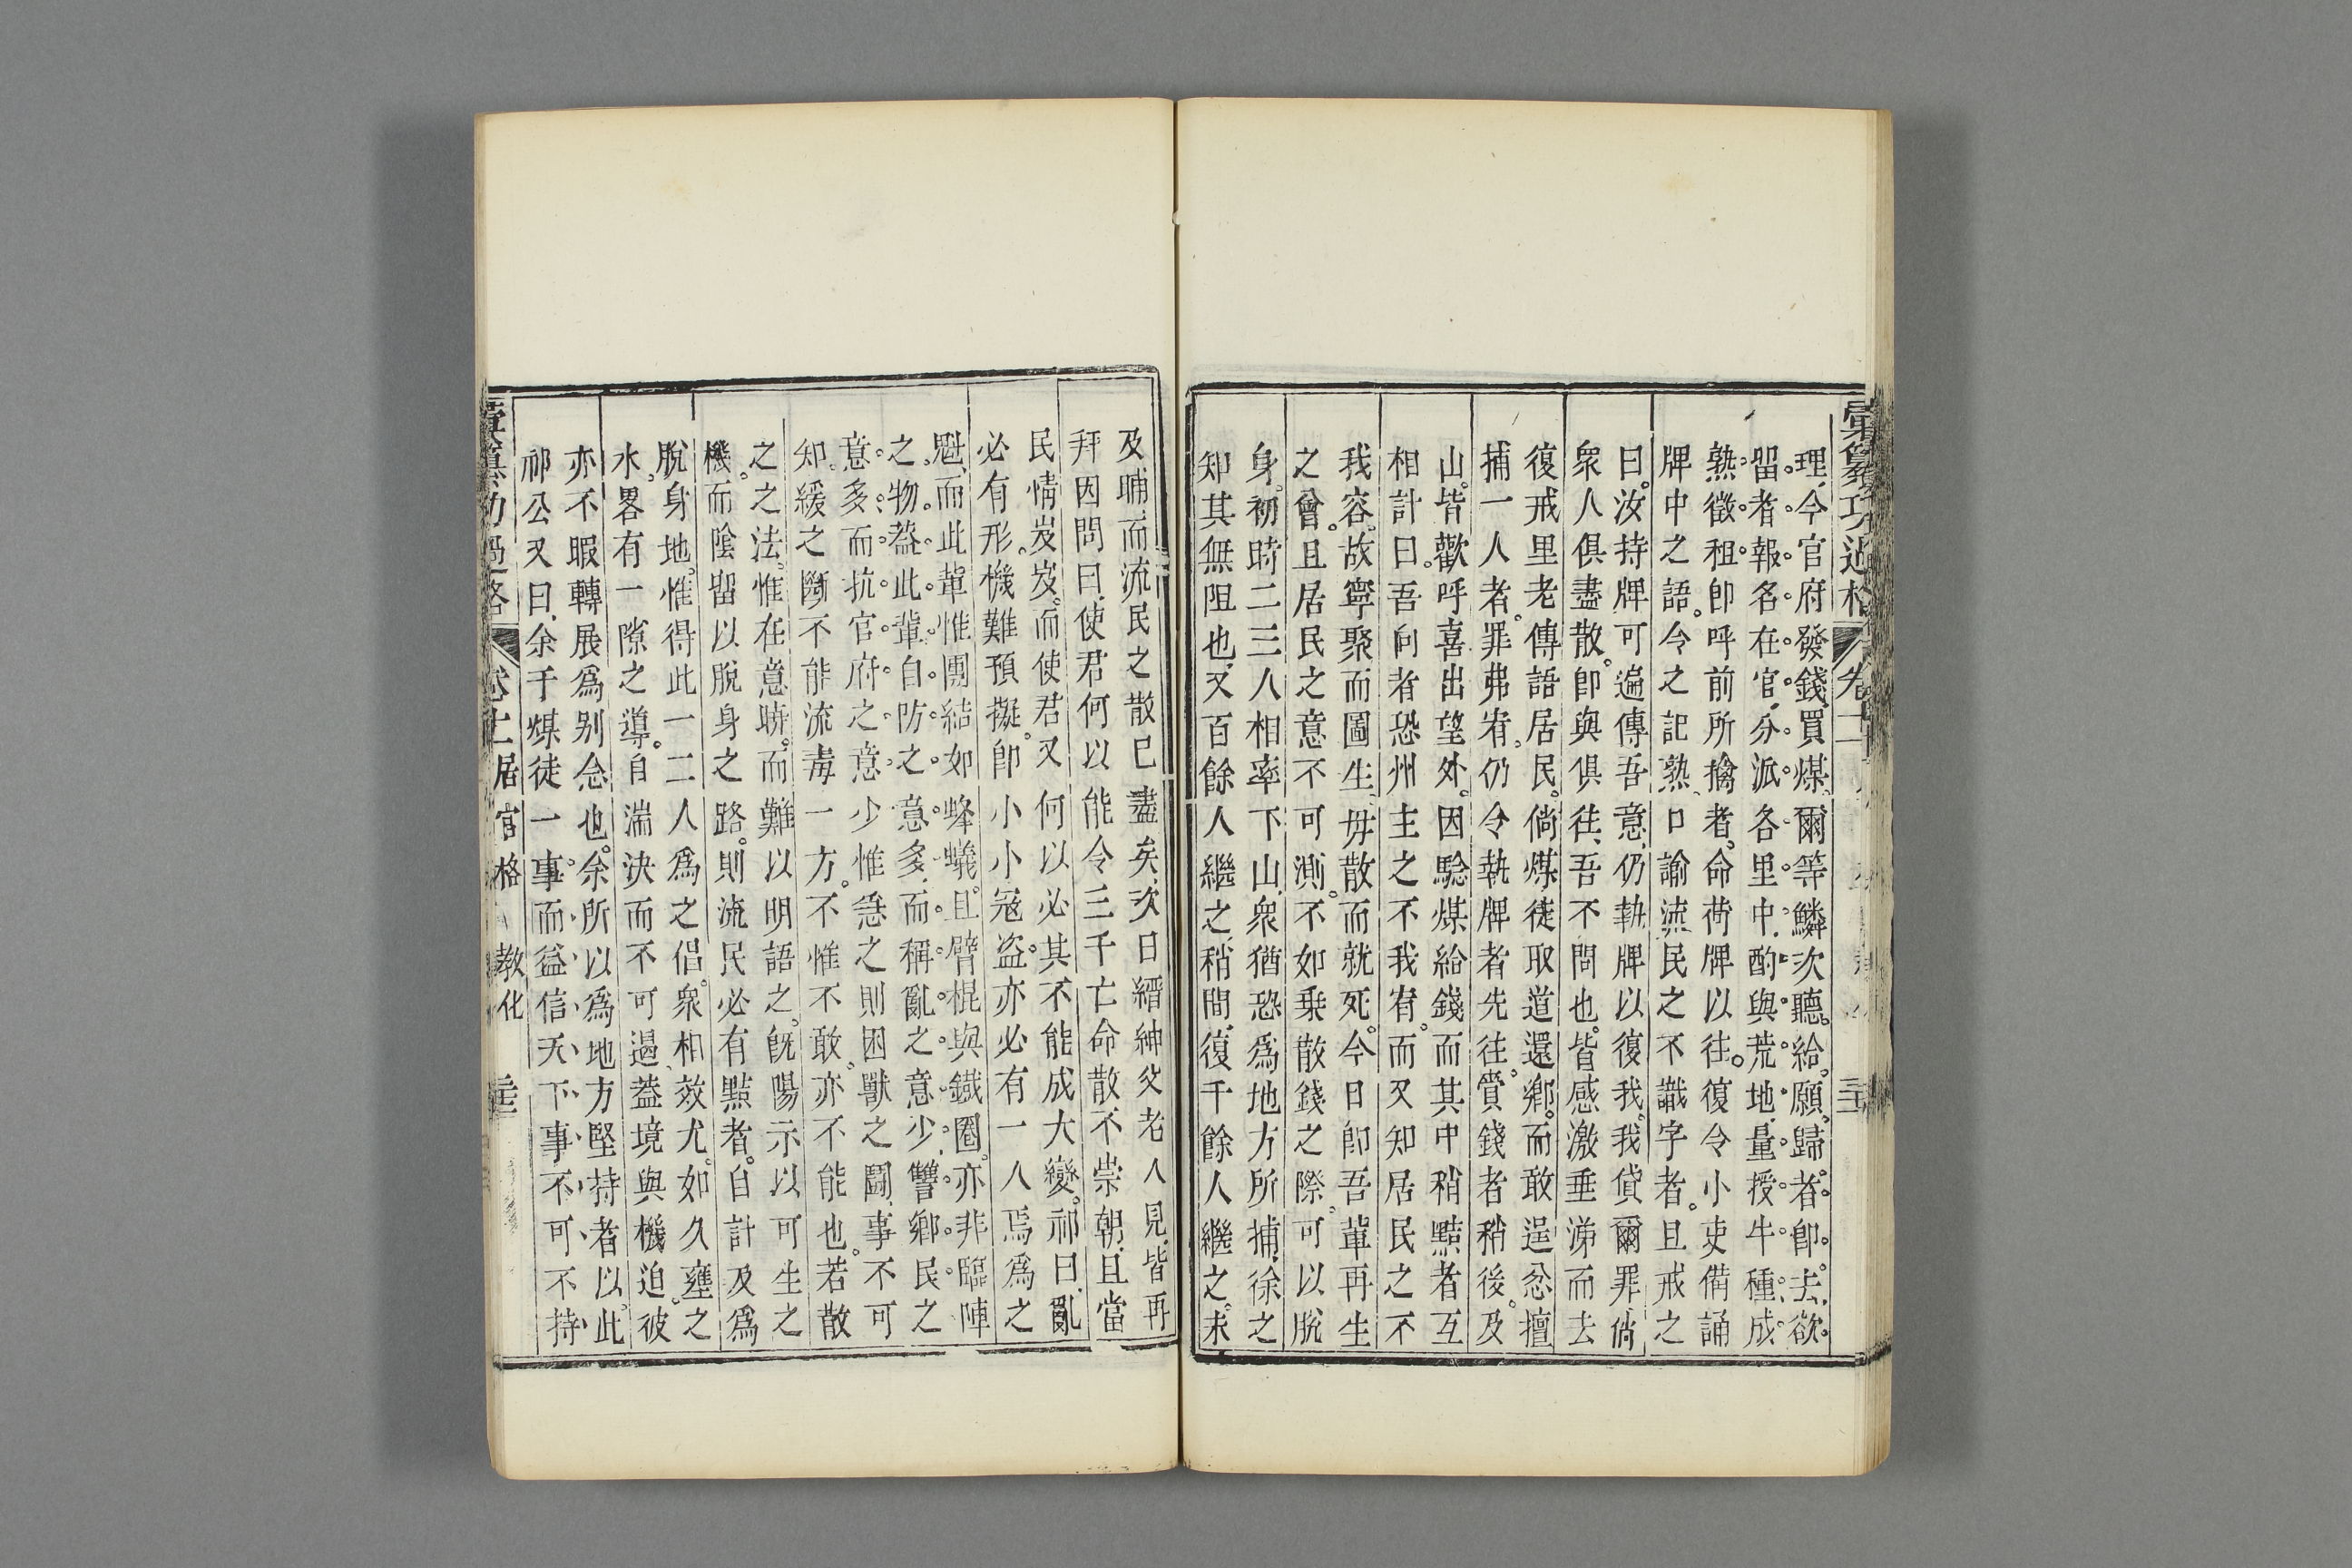 彙纂功過格　卷十
理、今官府發錢買煤、爾等鱗次聽給。願歸者卽去、欲
留者報名在官、分派各里中、酌與荒地、量授牛種、成
熟徵租、卽呼前所擒者、命荷牌以往。復令小吏備誦
牌中之語。令之記熟、口諭流民之不識字者。且戒之
曰。汝持牌可遍傳吾意、仍執牌以復我。我貸爾罪、倘
衆人俱盡散。卽與俱往、吾不問也。皆感激垂涕而去
復戒里老傳語居民。倘煤徒取道還鄉。而敢逞忿擅
捕一人者。罪弗宥。仍令執牌者先往。賞錢者稍後。及
山。皆歡呼喜出望外。因騐煤給錢而其中稍黠者互
相計曰。吾向者恐州主之不我宥。而又知居民之不
我容。故寧聚而圖生、毋散而就死。今日卽吾輩再生
之會。且居民之意不可測。不如乗散錢之際。可以脫
身。初時二三人相率下山、衆猶恐爲地方所捕、徐之
知其無阻也、又百餘人繼之、稍間、復千餘人繼之。未
及晡、而流民之散已盡矣、次日縉紳父老人見、皆再
拜因問曰、使君何以能令三千亡命散不崇朝、且當
民情岌岌。而使君又何以必其不能成大變。祁曰、亂
必有形。機難預擬。卽小小冦盗。亦必有一人焉爲之
魁、而此輩惟團結如蜂蟻。且臂棍與鐵圈。亦非臨陣
之物。葢此輩自防之意多、而稱亂之意少。讐鄉民之
意多而抗官府之意少惟急之則困獸之鬬、事不可
知。緩之斷不能流毒一方。不惟不敢。亦不能也。若散
之之法。惟在意晓。而難以明語之。旣陽示以可生之
機。而陰留以脫身之路。則流民必有黠者。自計及爲
脫身地。惟得此一二人爲之倡。衆相效尤。如久壅之
水。畧有一隙之導。自湍決而不可遏葢境與機迫。彼
亦不暇轉展爲别念也。余所以爲地方堅持者以此
祁公又曰、余于煤徒一事。而益信天下事、不可不持
卷十　居官格　教化